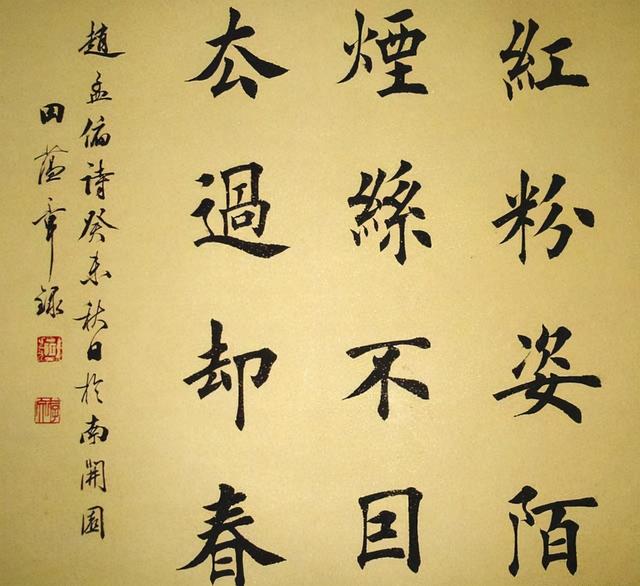 紅粉姿陌
煙絲不囙
厺過却春
趙孟俯詩癸未秋日於南開園
田蘊章錄